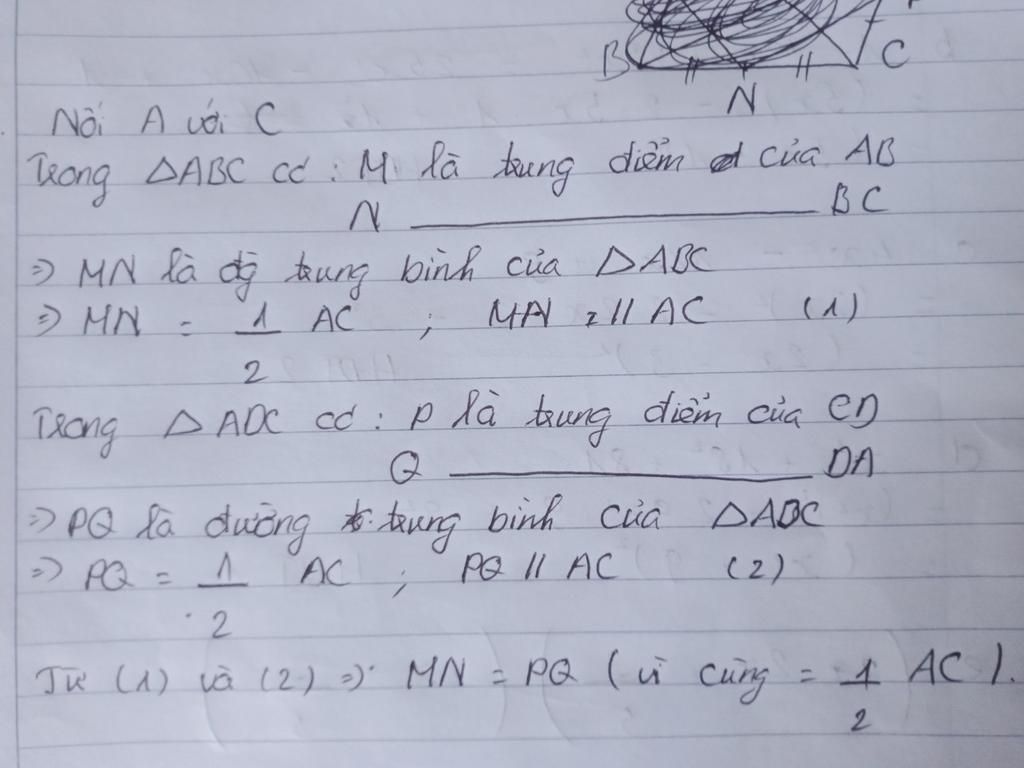 B C
N
Nối A với C
Trong △ABC có : M là trung điểm của AB
N ——— BC
=> MN là đg trung bình của △ABC
=> MN = 1/2 AC ; MN // AC (1)
Trong △ADC có : P là trung điểm của CD
Q ——— DA
=> PQ là đường trung bình của △ADC
=> PQ = 1/2 AC ; PQ // AC (2)
Từ (1) và (2) => MN = PQ (vì cùng = 1/2 AC).